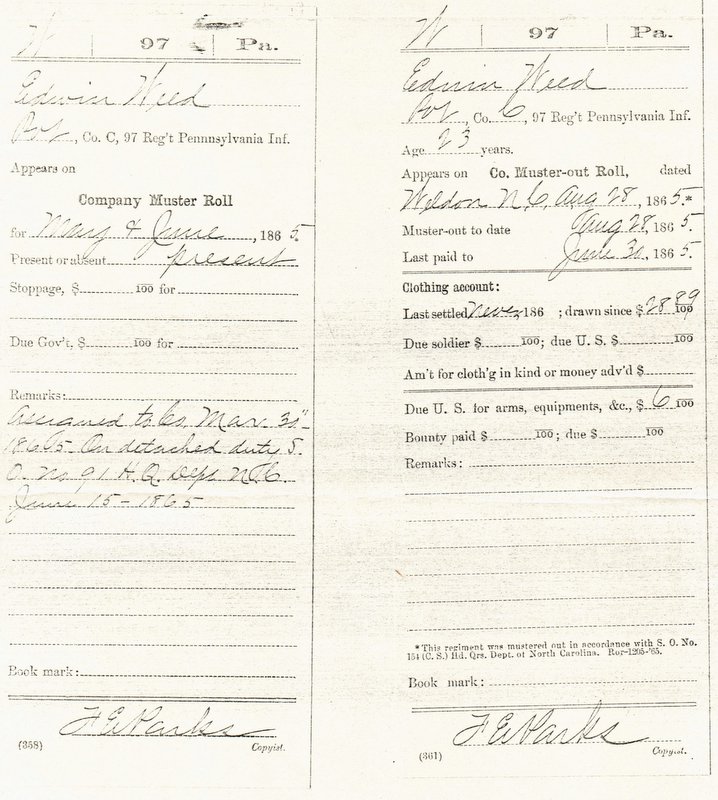 W | 97 | Pa.
Edwin Weed
Pvt, Co. C, 97 Reg't Pennnsylvania Inf.
Appears on
Company Muster Roll
for May & June, 1865.
Present or absent present
Stoppage, $ 100 for
Due Gov't, $ 100 for
Remarks:
Assigned to Co. Mar. 30"
1865 On detached duty S.
O. No 91 H.Q. Dept N.C.
June 15-1865
Book mark:
F E Parks
(358) Copyist.
W | 97 | Pa.
Edwin Weed
Pvt, Co. C, 97 Reg't Pennsylvania Inf.
Age 23 years.
Appears on Co. Muster-out Roll, dated
Weldon N.C. Aug 28, 1865.*
Muster-out to date Aug 28, 1865.
Last paid to June 30, 1865.
Clothing account:
Last settled never, 186 ; drawn since $ 28 89/100
Due soldier $ 100; due U. S. $ 100
Am't for cloth'g in kind or money adv'd $
Due U. S. for arms, equipments, &c., $ 6 100
Bounty paid $ 100; due $ 100
Remarks:
*This regiment was mustered out in accordance with S. O. No.
154 (C. S.) Hd. Qrs. Dept. of North Carolina. Ror-1205-'65.
Book mark:
F E Parks
(361) Copyist.